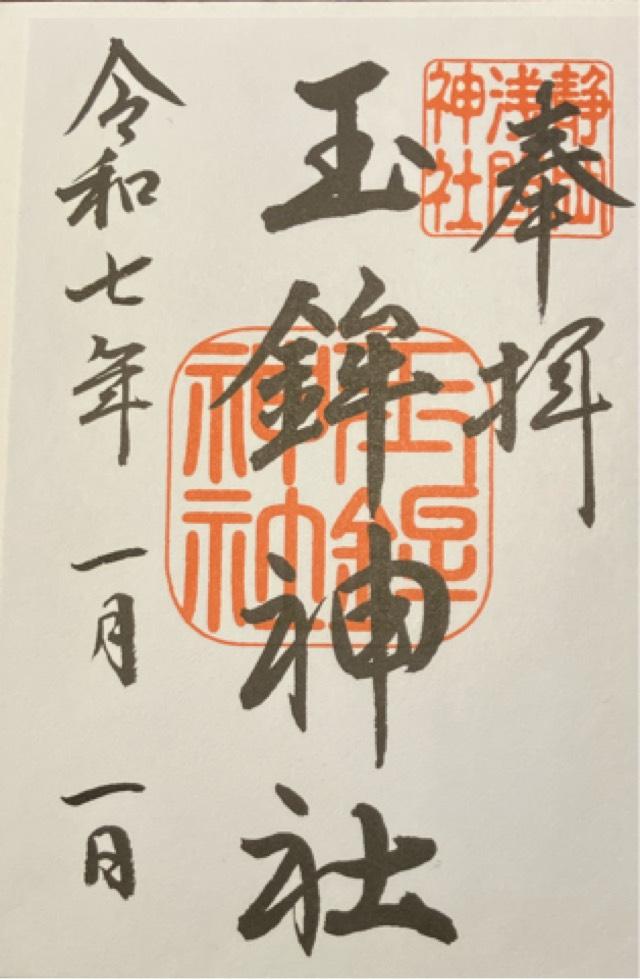 奉拝
静岡
浅間
神社
玉鉾神社
玉鉾
神社
令和七年一月一日